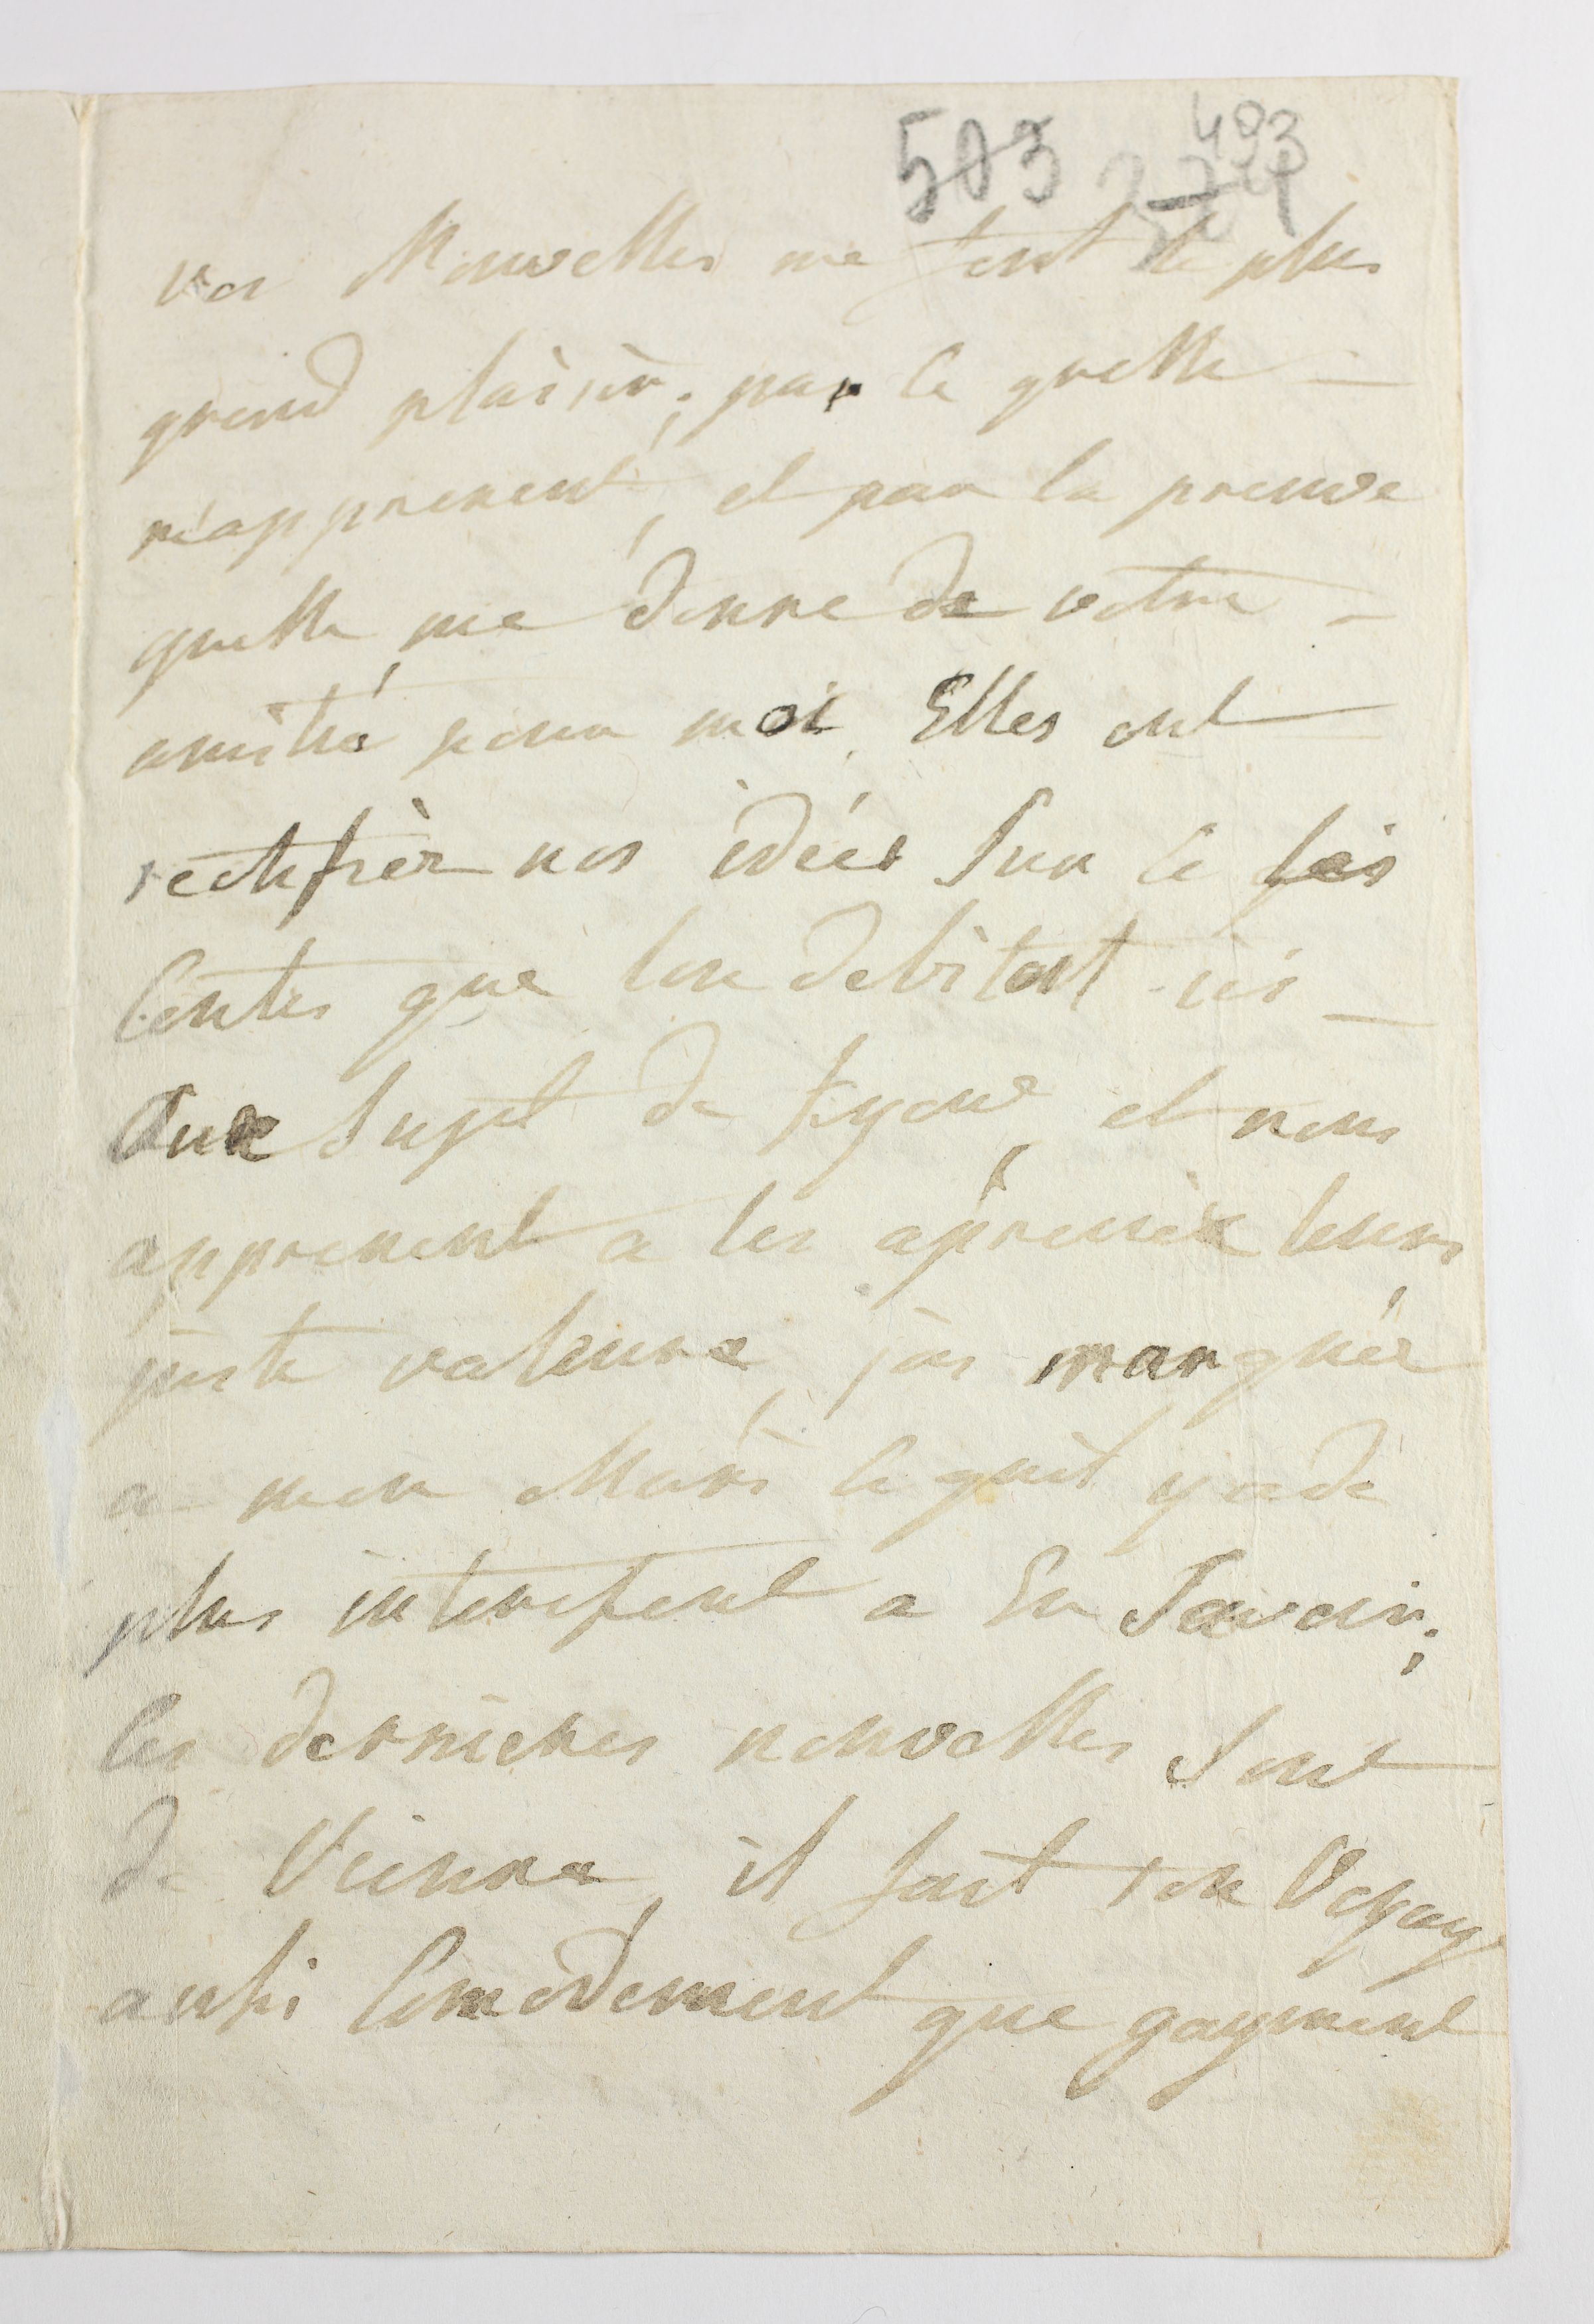 503 493
vos Nouvelles me font le plus
grend plaisir; par ce quelle
m'apprenent, et par la preuve
quelle me donne de votre
amitié pour moi. Elles ont
rectifièr nos idées sur ce
Contes que lon debitoit ici
Aux sujet de Lyon, et nous
apprenent a les apresièr leurs
juste valeure, j'ai marquér
a mon Mari ce quil y a de
plus interessent a En Savoir;
les dernieres nouvelles sont
de Vienne, il fait son Voyage
aussi Comodement que gayment